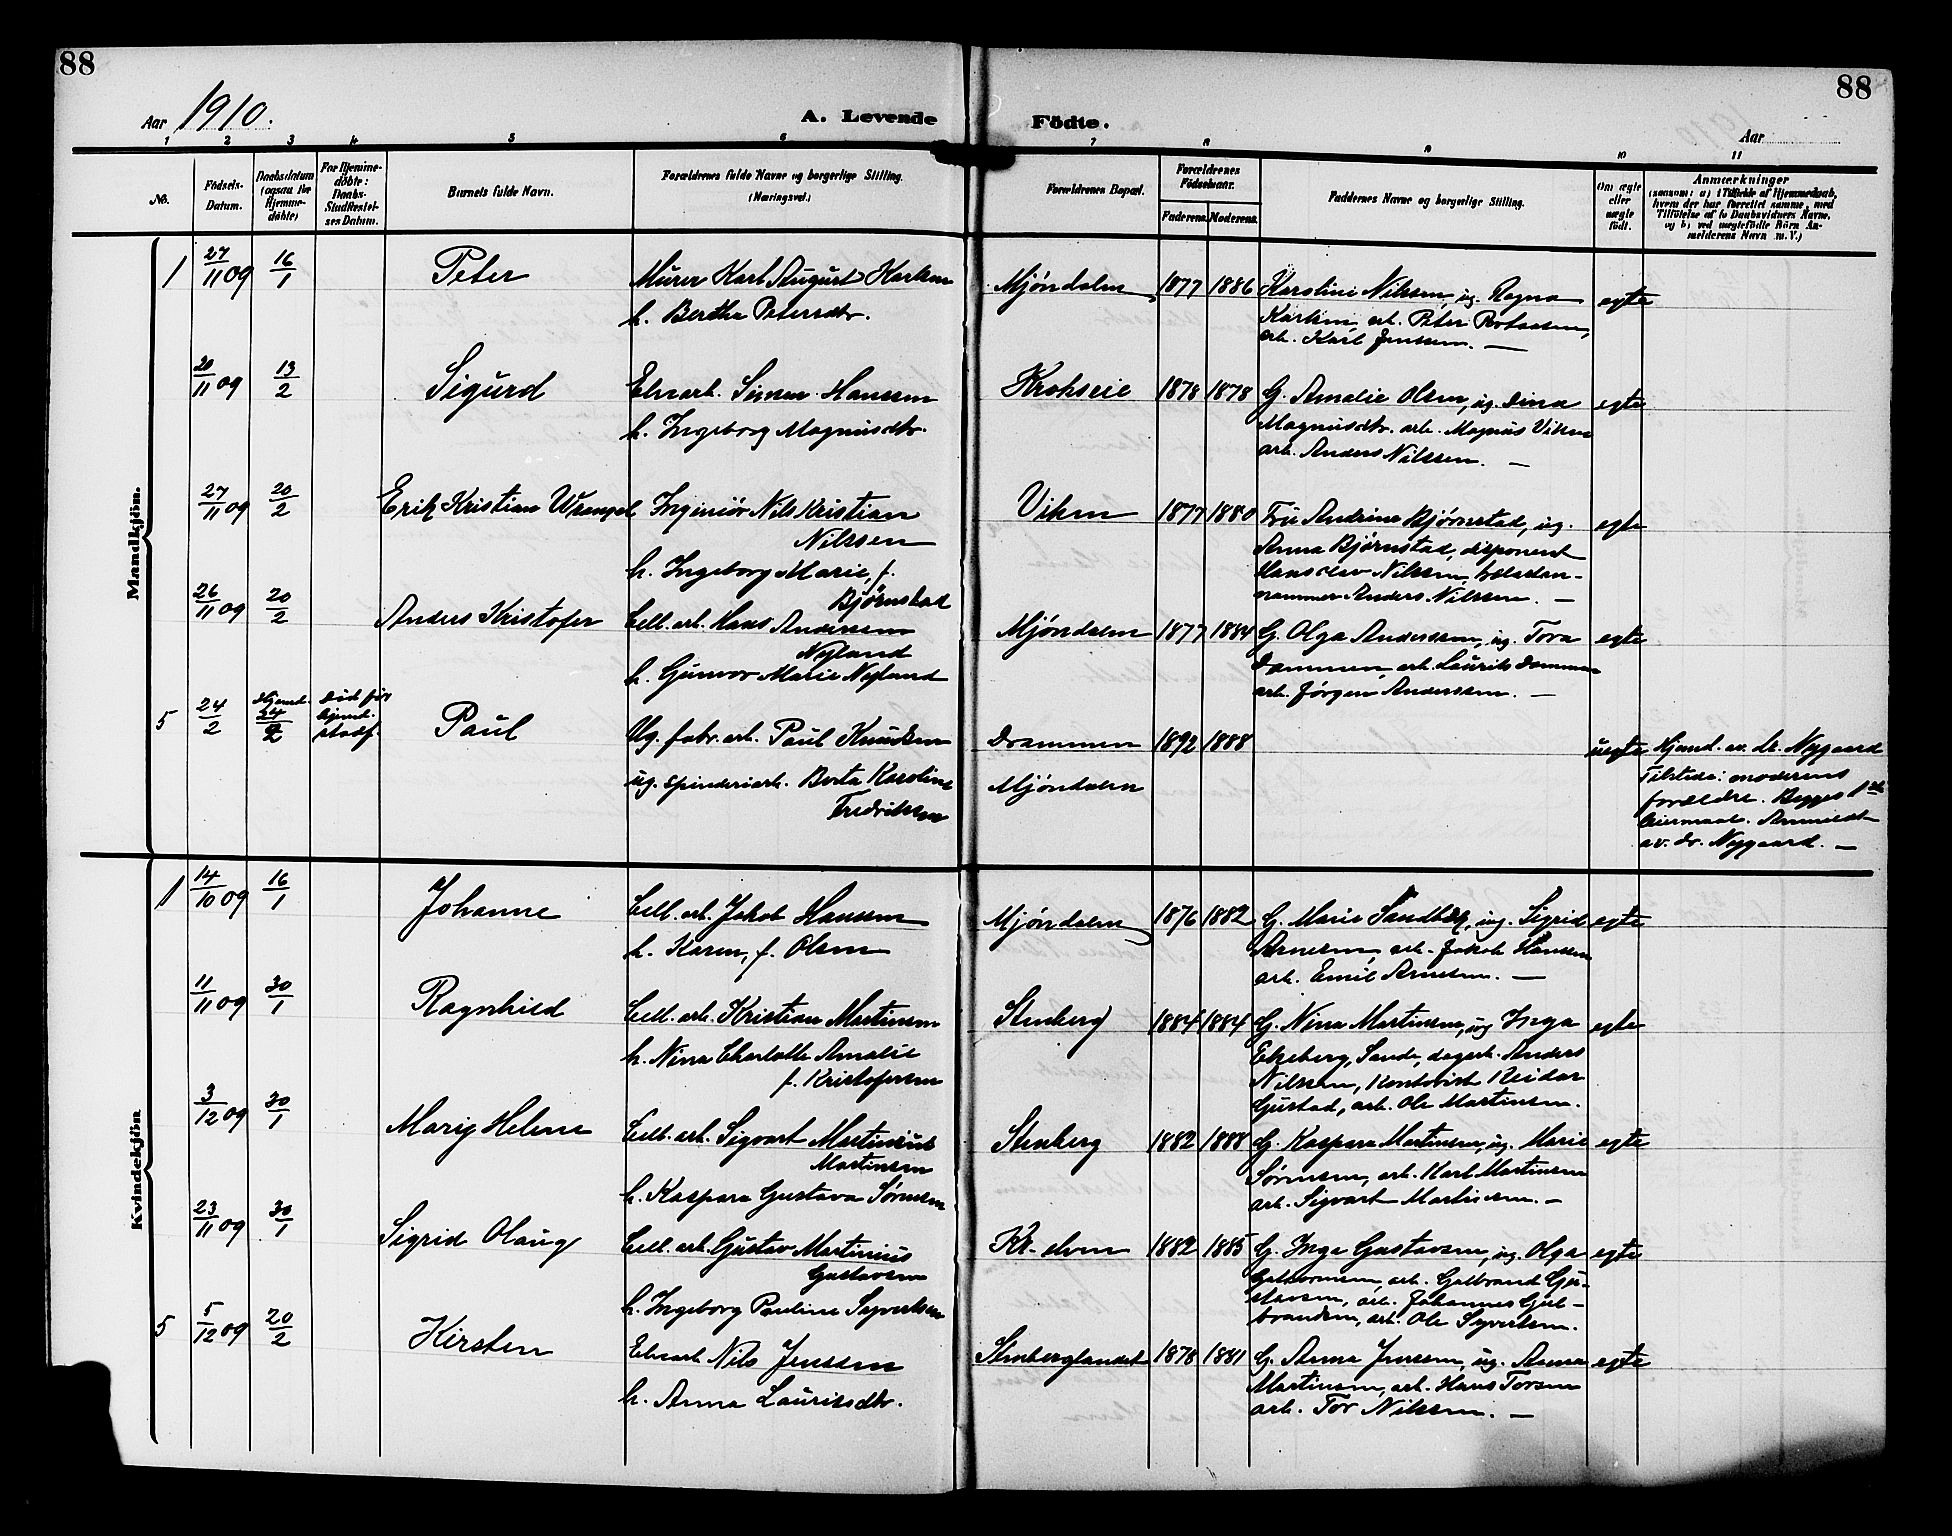 88
88
Aar 1910.
A. Levende
Födte.
Aar
1 2 3 4 5 6 7 8 9 10 11
No.
Födsels-
Datum.
Daabsdatum
(ogsaa for
Hjemme-
döbte)
For Hjemme-
döbte:
Daabs-
Stadfæstel-
ses Datum.
Barnets fulde Navn.
Forældrenes fulde Navne og borgerlige Stilling.
(Næringsvei.)
Forældrenes Bopæl.
Forældrenes
Födselsaar.
Faderens. Moderens.
Faddernes Navne og borgerlige Stilling.
Om ægte
eller
uægte
födt.
Anmærkninger
(saasom: a) i Tilfælde af Hjemmedaab,
hvem der har forrettet samme, med
Tilföielse af to Daabsvidners Navne,
og b) ved uægtefödte Börn An-
melderens Navn m. V.)
Mandkjön.
1
27/11 09
16/1
Peter
Murer Karl August Karlsen
h. Bertha Petersdtr.
Mjøndalen
1877 1886
Karoline Nilsen, ug. Ragna
Karlsen, arb. Peter
arb. Karl Jenssen. —
egte
20/11 09
13/2
Sigurd
Elvearb. Simen Hanssen
h. Ingeborg Magnusdtr.
Krokseie
1878 1878
G. Amalie Olsen, ug. Dina
Magnusdtr. arb. Magnus Viken
arb. Anders Nilssen. —
egte
27/11 09
20/2
Erik Kristian Wrangel
Ingeniör Nils Kristian
Nilssen
h. Ingeborg Marie, f.
Bjørnstad
Viken
1877 1880
Fru Andrine Bjørnstad, ug.
Anna Bjørnstad, disponent
Hans Olav Nilssen,
Anders Nilssen. —
egte
26/11 09
20/2
Anders Kristofer
Cell. arb. Hans Anderssen
Nyland
h. Gunvor Marie Nyland
Mjøndalen
1877 1884
G. Olga Anderssen, ug. Tora
Dammen, arb. Laurits Dammen
arb. Jørgen Anderssen. —
egte
5
24/2
Hjemd.
24/2
Död för
hjemd.
stadf.
Paul
Ug. fabr. arb. Paul Knudsen
ug. spinderiarb. Berta Karoline
Fredriksen
Drammen
Mjøndalen
1892 1888
uegte
Hjemd. av dr. Nygaard
Tilstede: moderens
forældre. Begges 1ste
leiermaal. Anmeldt
av dr. Nygaard. —
Kvindekjön
1
14/10 09
16/1
Johanne
Cell. arb. Jakob Hansen
h. Karen, f. Olsen
Mjøndalen
1876 1882
G. Marie Sandbæk, ug. Sigrid
Arnesen, arb. Jakob Hansen
arb. Emil Arnesen. —
egte
11/11 09
30/1
Ragnhild
Cell. arb. Kristian Martinsen
h. Nina Charlotte Amalie
f. Kristofersen
Stenberg
1884 1884
G. Nina Martinsen, ug. Inga
Ekeberg, Sande, dagarb. Anders
Nilssen, Kontorist Reidar
Gustad, arb. Ole Martinsen.
egte
3/12 09
30/1
Mary Helene
Cell. arb. Sigvart Martinius
Martinsen
h. Kaspara Gustava Sørensen
Stenberg
1882 1888
G. Kaspara Martinsen, ug. Marie
Sørensen, arb. Karl Martinsen
arb. Sigvart Martinsen. —
egte
23/11 09
30/1
Sigrid Olaug
Cell. arb. Gustav Martinius
Gustavsen
h. Ingeborg Pauline Syvertsen
Kr-elven
1882 1885
G. Inga Gustavsen, ug. Olga
Gulbrandsen, arb. Gulbrand Gu-
stavsen, arb. Johannes Gul-
brandsen, arb. Ole Syvertsen.
egte
5
5/12 09
20/2
Kirsten
Elvearb. Nils Jenssen
h. Anna Lauritsdtr.
Stenberglandet
1878 1881
G. Anna Jenssen, ug. Anna
Martinsen, arb. Hans Torsen
arb. Tor Nilssen. —
egte